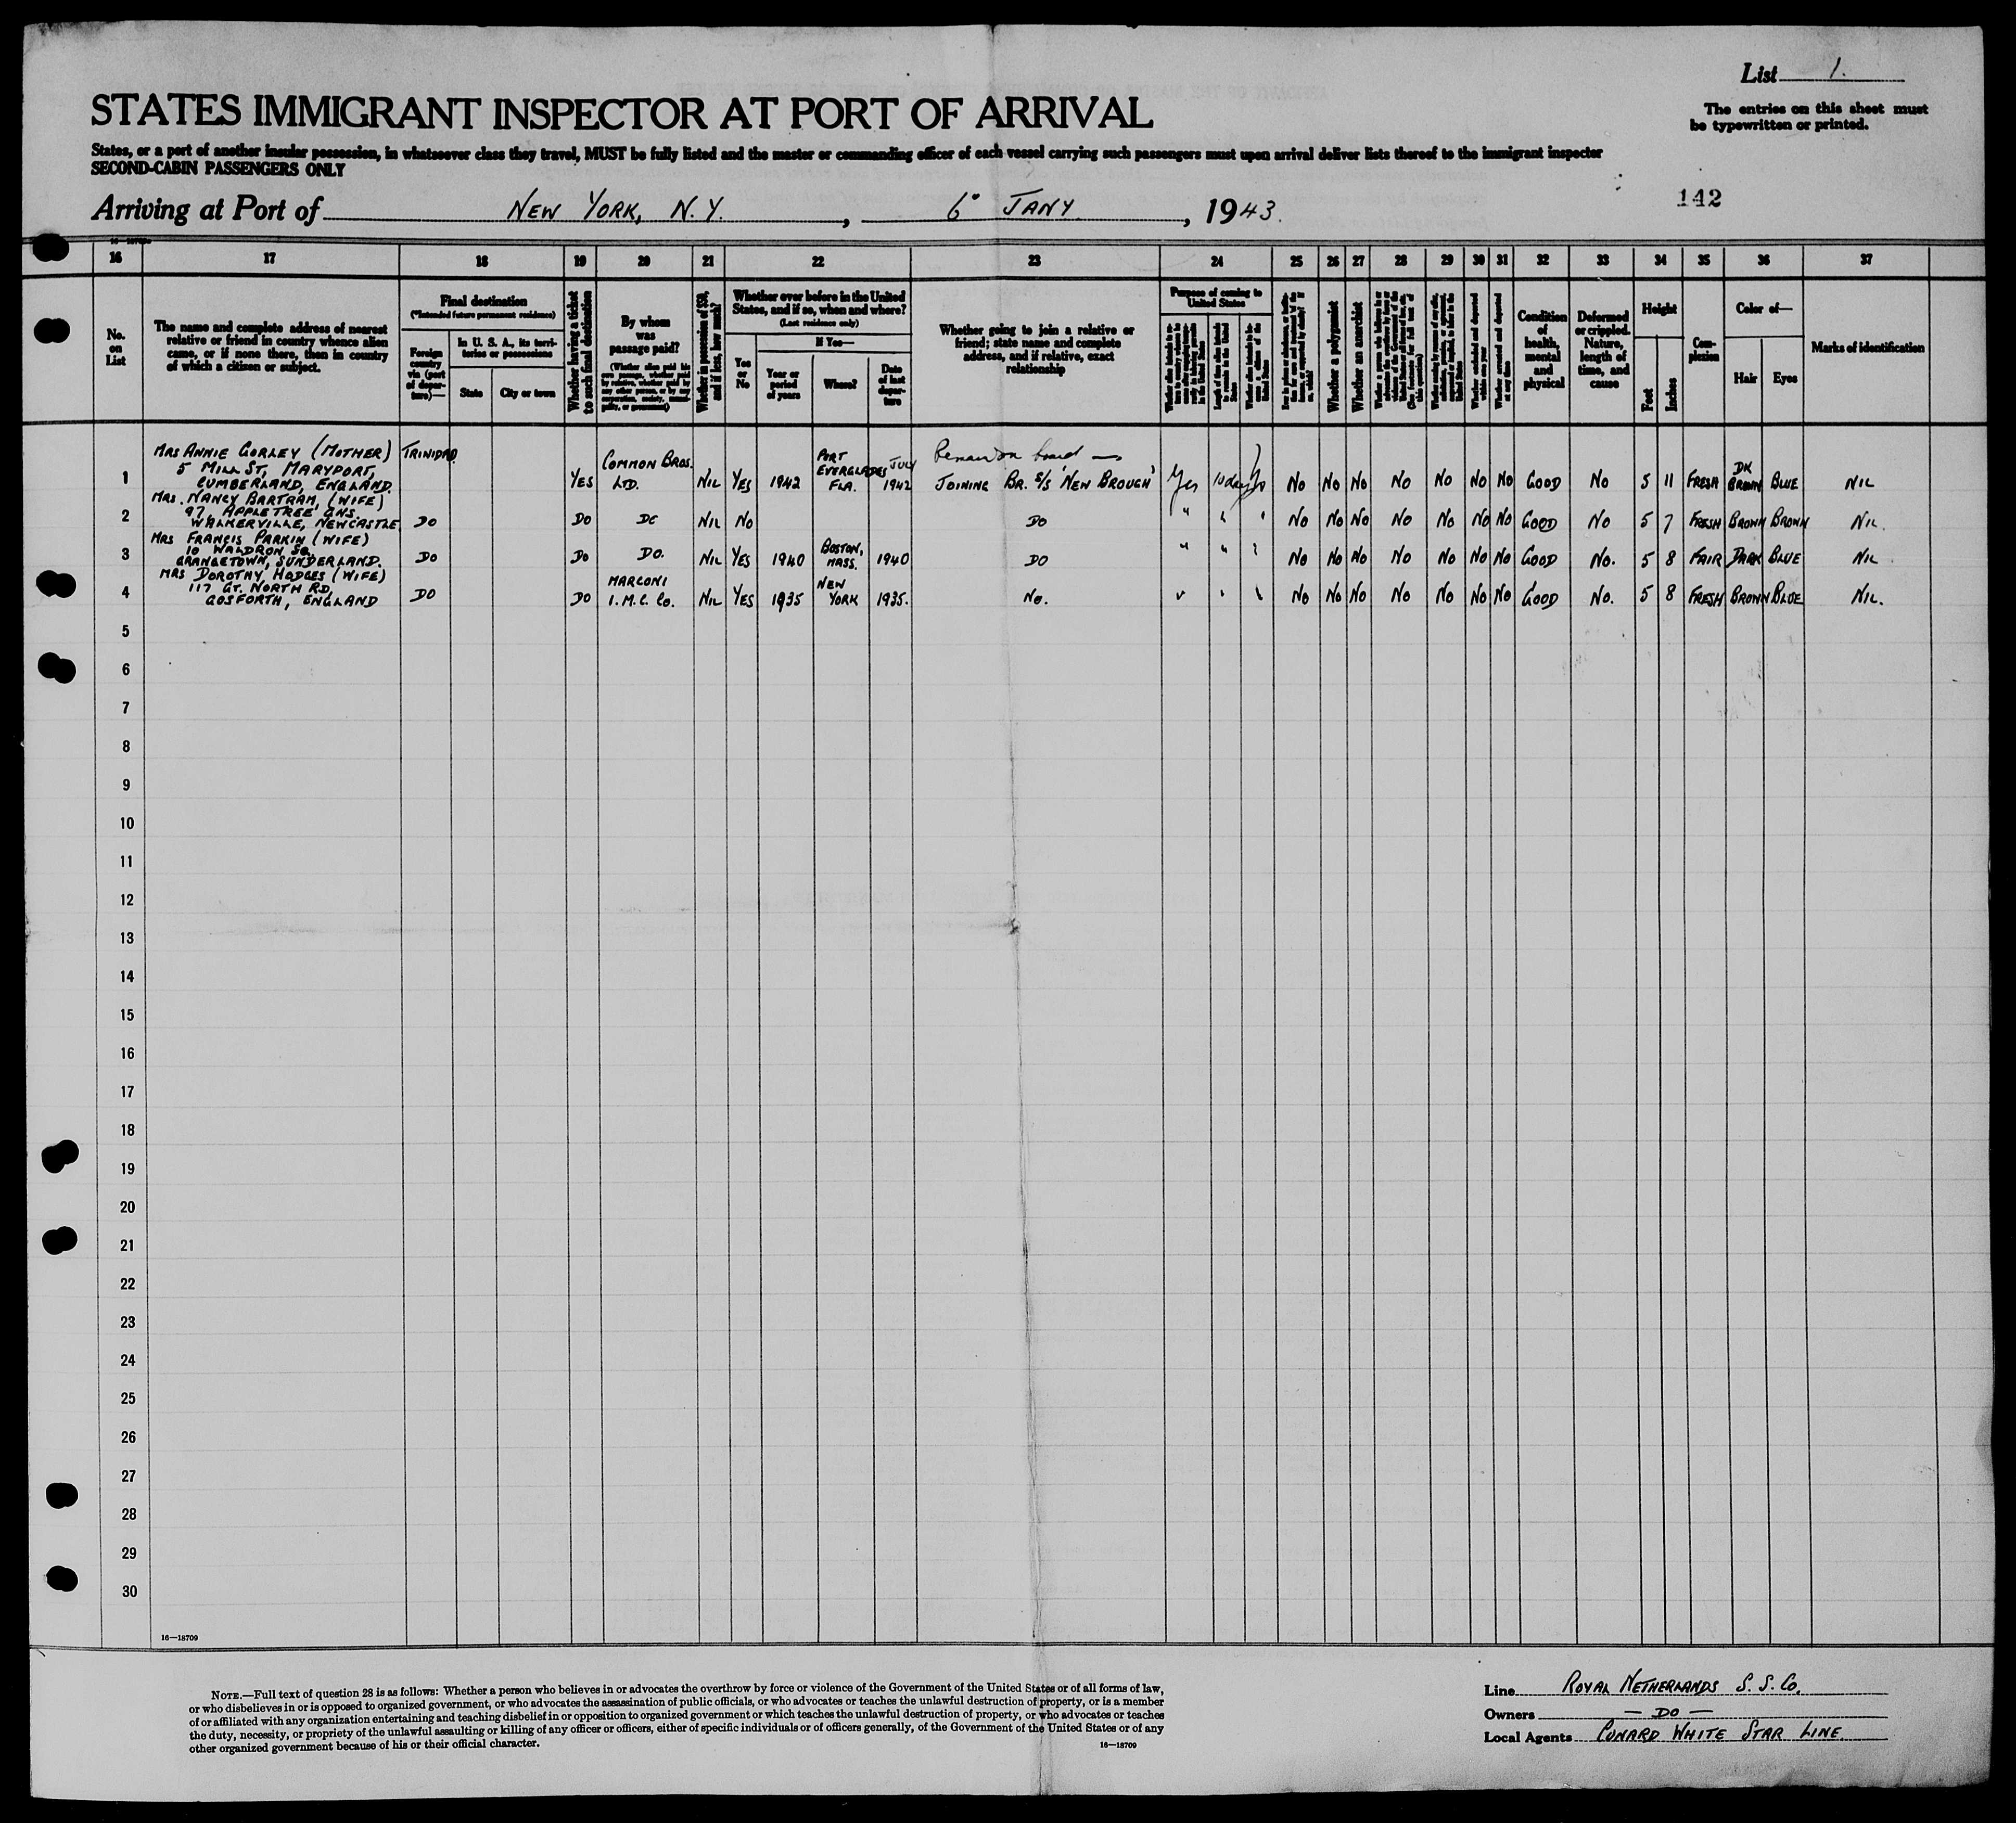 List 1.
The entries on this sheet must
be typewritten or printed.
STATES IMMIGRANT INSPECTOR AT PORT OF ARRIVAL
States, or a port of another insular possession, in whatsoever class they travel, MUST be fully listed and the master or commanding officer of each vessel carrying such passengers must upon arrival deliver lists thereof to the immigrant inspector
SECOND-CABIN PASSENGERS ONLY
Arriving at Port of NEW YORK, N.Y., 6° JANY, 1943.
142
16 17 18 19 20 21 22 23 24 25 26 27 28 29 30 31 32 33 34 35 36 37
No.
on
List
The name and complete address of nearest
relative or friend in country whence alien
came, or if none there, then in country
of which a citizen or subject.
Final destination
(*Intended future permanent residence)
Foreign
country
via (port
of depar-
ture)—
In U. S. A., its terri-
tories or possessions
State
City or town
Whether having a ticket
to such final destination
By whom
was
passage paid?
(Whether alien paid his
own passage, whether paid
by relative, whether paid by
any other person, or by any
corporation, society, munici-
pality, or government)
Whether in possession of $50,
and if less, how much?
Whether ever before in the United
States, and if so, when and where?
(Last residence only)
Yes
or
No
If Yes—
Year or
period
of years
Where?
Date
of last
depar-
ture
Whether going to join a relative or
friend; state name and complete
address, and if relative, exact
relationship
Purpose of coming to
United States
Whether a polygamist
Whether an anarchist
Condition
of
health,
mental
and
physical
Deformed
or crippled.
Nature,
length of
time, and
cause
Height
Feet
Inches
Com-
plexion
Color of—
Hair
Eyes
Marks of identification
1 MRS ANNIE GORLEY (MOTHER)
5 MILL ST, MARYPORT,
CUMBERLAND, ENGLAND. TRINIDAD. YES COMMON BROS. LTD. NIL YES 1942 PORT EVERGLADES FLA. JULY 1942 JOINING BR. S/S 'NEW BROUGH' Yes 10 days No No No No No No No No GOOD No 5 11 FRESH DK BROWN BLUE NIL
2 MRS. NANCY BARTRAM, (WIFE)
97, APPLETREE GNS.
WALKERVILLE, NEWCASTLE DO DO DO NIL NO DO " " " No No No No No No No GOOD No 5 7 FRESH BROWN BROWN NIL.
3 MRS FRANCIS PARKIN (WIFE)
10 WALDRON SQ.
GRANGETOWN, SUNDERLAND. DO DO DO. NIL YES 1940 BOSTON, MASS. 1940 DO " " " No No No No No No No GOOD No. 5 8 FAIR DARK BLUE NIL
4 MRS DOROTHY HODGES (WIFE)
117 GT. NORTH RD,
GOSFORTH, ENGLAND DO DO MARCONI I.M.C. Co. NIL YES 1935 NEW YORK 1935. No. " " " No No No No No No No GOOD No. 5 8 FRESH BROWN BLUE NIL.
5
6
7
8
9
10
11
12
13
14
15
16
17
18
19
20
21
22
23
24
25
26
27
28
29
30
16—18709
NOTE.—Full text of question 28 is as follows: Whether a person who believes in or advocates the overthrow by force or violence of the Government of the United States or of all forms of law,
or who disbelieves in or is opposed to organized government, or who advocates the assassination of public officials, or who advocates or teaches the unlawful destruction of property, or is a member
of or affiliated with any organization entertaining and teaching disbelief in or opposition to organized government or which teaches the unlawful destruction of property, or who advocates or teaches
the duty, necessity, or propriety of the unlawful assaulting or killing of any officer or officers, either of specific individuals or of officers generally, of the Government of the United States or of any
other organized government because of his or their official character.
16—18709
Line ROYAL NETHERLANDS S.S. Co.
Owners — DO —
Local Agents CUNARD WHITE STAR LINE.